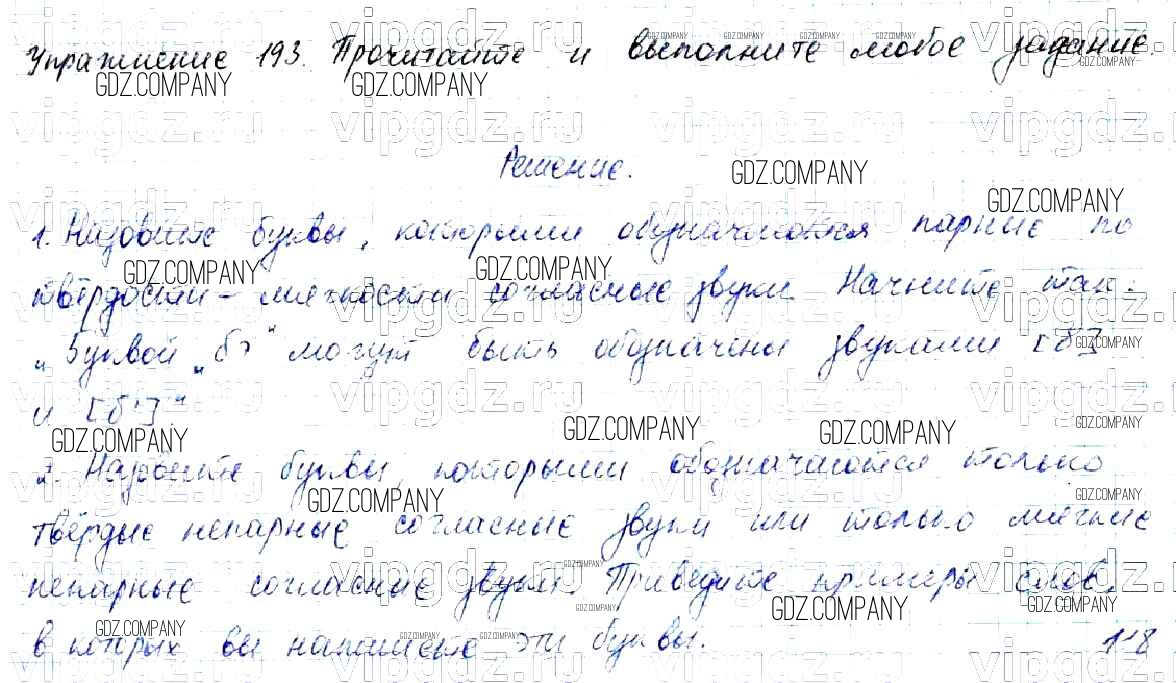 Упражнение 193. Прочитайте и выполните любое задание.
Решение.
1. Назовите буквы, которыми обозначаются парные по
твёрдости – мягкости согласные звуки. Начните так:
„Буквой „бэ“ могут быть обозначены звуками [б]
и [б']“
2. Назовите буквы, которыми обозначаются только
твёрдые непарные согласные звуки или только мягкие
непарные согласные звуки. Приведите примеры слов,
в которых вы напишете эти буквы.
118
vipgdz.ru
GDZ.COMPANY